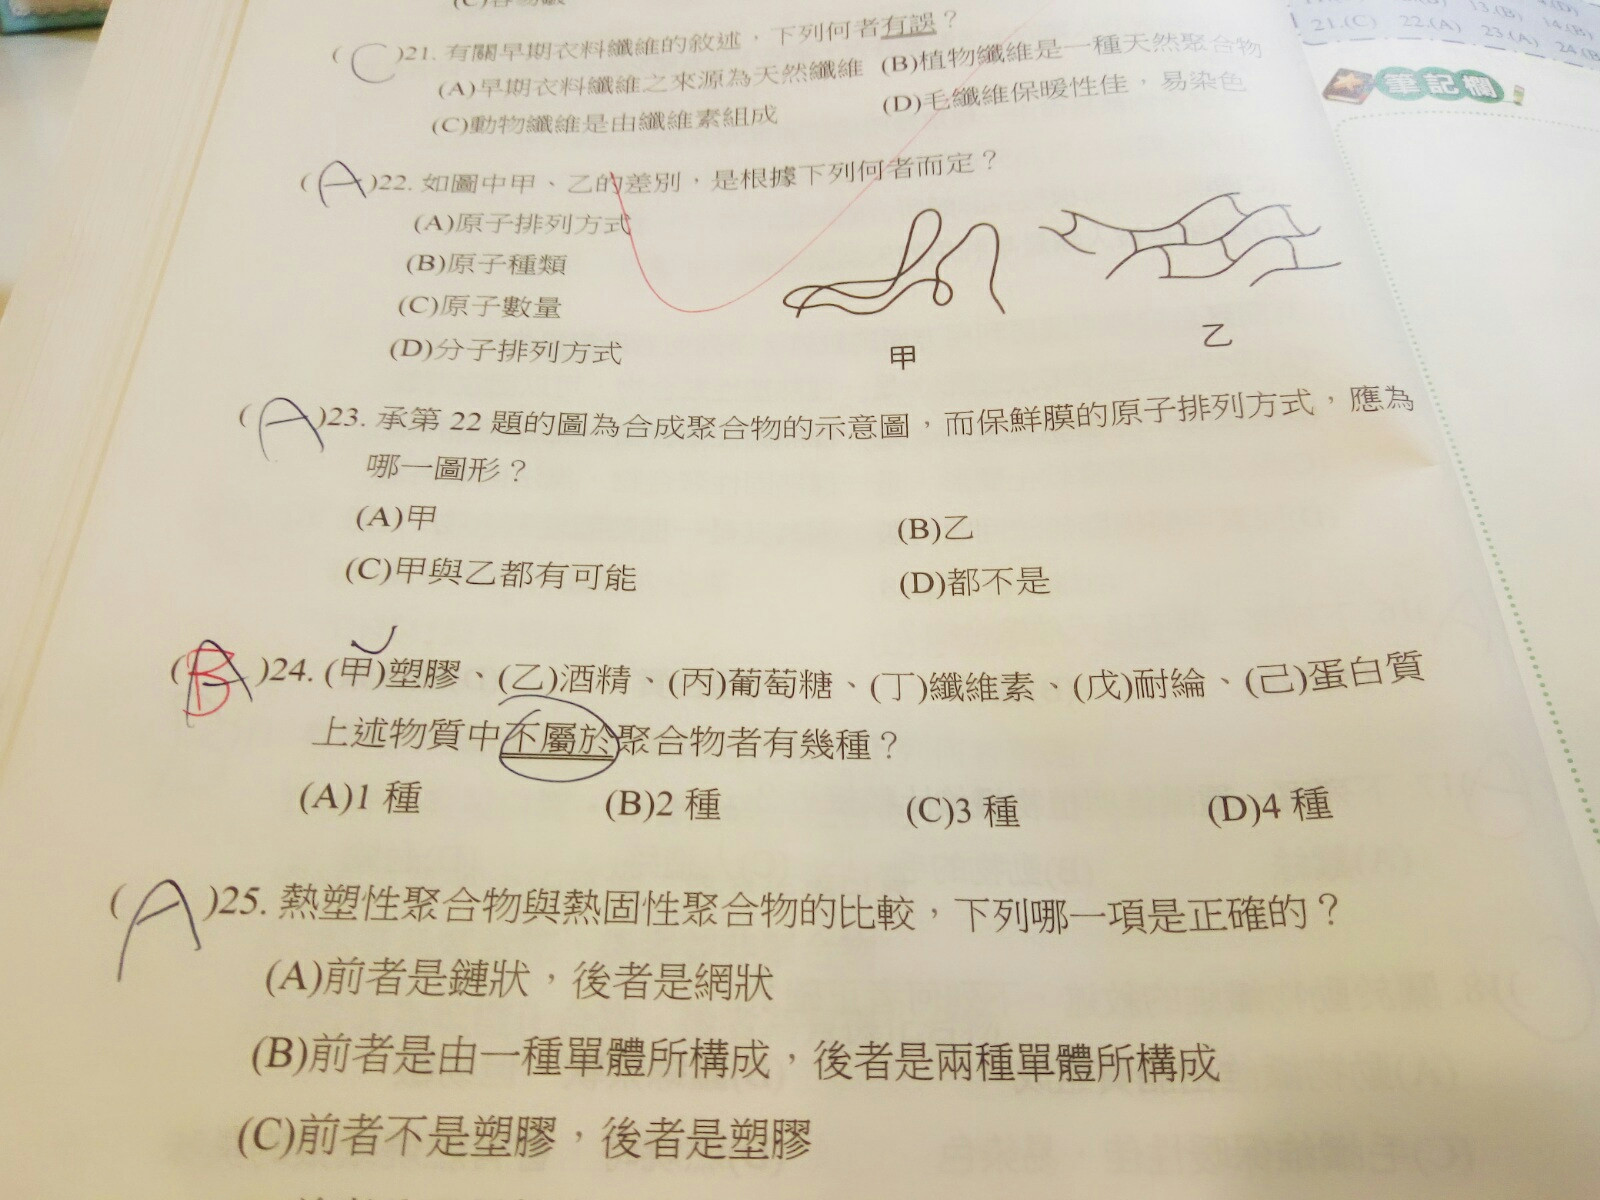 C
)21. 有關早期衣料纖維的敘述，下列何者有誤？
(A)早期衣料纖維之來源為天然纖維 (B)植物纖維是一種天然聚合物
(C)動物纖維是由纖維素組成 (D)毛纖維保暖性佳，易染色
(A)22. 如圖中甲、乙的差別，是根據下列何者而定？
(A)原子排列方式
(B)原子種類
(C)原子數量
(D)分子排列方式
甲
乙
(A)23. 承第 22 題的圖為合成聚合物的示意圖，而保鮮膜的原子排列方式，應為
哪一圖形？
(A)甲 (B)乙
(C)甲與乙都有可能 (D)都不是
(B A)24. (甲)塑膠、(乙)酒精、(丙)葡萄糖、(丁)纖維素、(戊)耐綸、(己)蛋白質
上述物質中不屬於聚合物者有幾種？
(A)1 種 (B)2 種 (C)3 種 (D)4 種
(A)25. 熱塑性聚合物與熱固性聚合物的比較，下列哪一項是正確的？
(A)前者是鏈狀，後者是網狀
(B)前者是由一種單體所構成，後者是兩種單體所構成
(C)前者不是塑膠，後者是塑膠
13.(B) 14.(B)
21.(C) 22.(A) 23.(A)
筆記欄